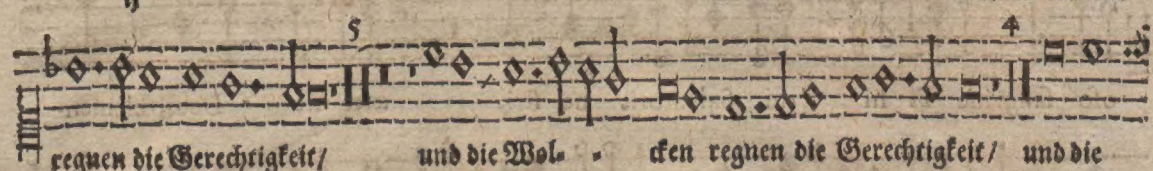 5 4
regnen die Gerechtigkeit/ und die Wol- - cken regnen die Gerechtigkeit/ und die